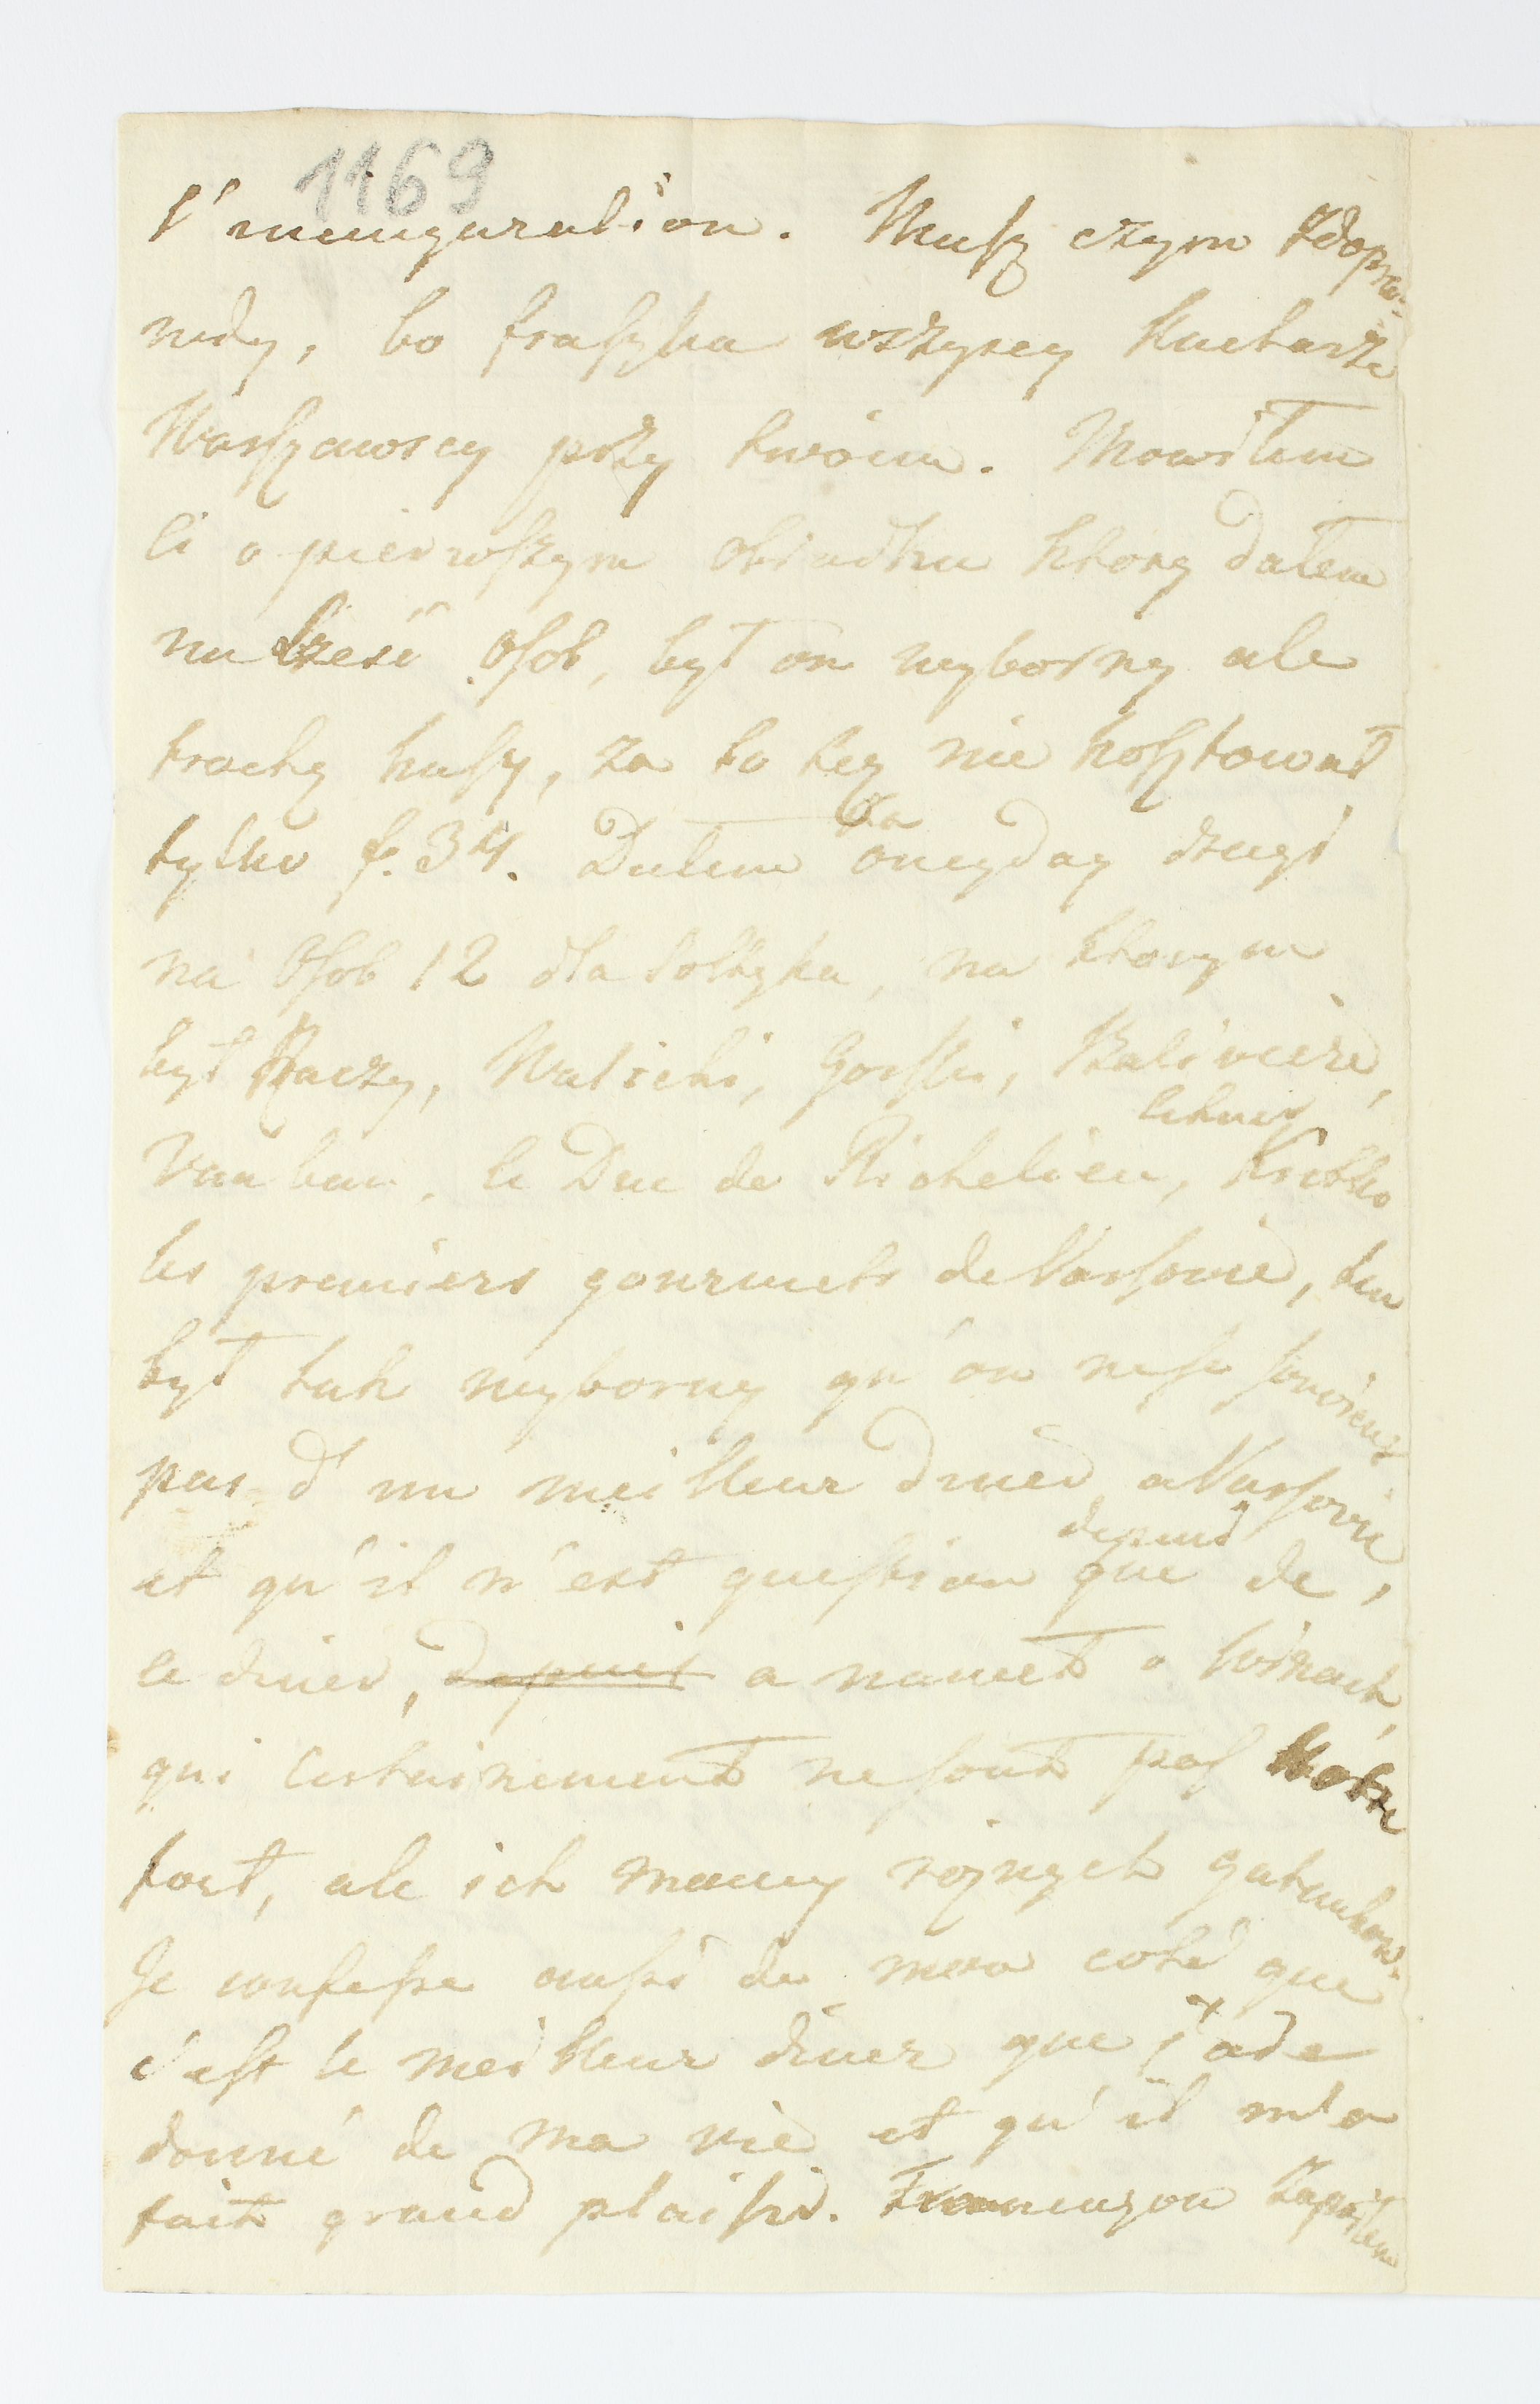 1169
l'inauguration. Masz czym
nedy, bo fraszka wszyscy Kucharze
Warszawscy przy twoim. Mowiłem
Ci o pierwszym obiadku ktory dałem
na sześć Osob, był on wyborny ale
trochę kusy, za to też nie kosztował
tylko f. 34. Dałem onegday drugi
na Osob 12 dla Sołtyka, na ktorym
był Raczy, Walicki, Gorski, Baliviere,
Vauban, le Duc de Richelieu,
les premiers gourmets de Varsovie, ten
był tak wyborny qu'on ne se souvient
pas d'un meilleur diner a Varsovie,
depuis
et qu'il n'est question que de,
ce diner, depuis a nawet o Winach,
qui certainement ne sont pas Notre
fort, ale ich mamy rożnych gatunkow.
Je confesse aussi de mon coté que
c'est le meilleur diner que j'ai
donné de ma vie et qu'il m'a
fait grand plaisir.